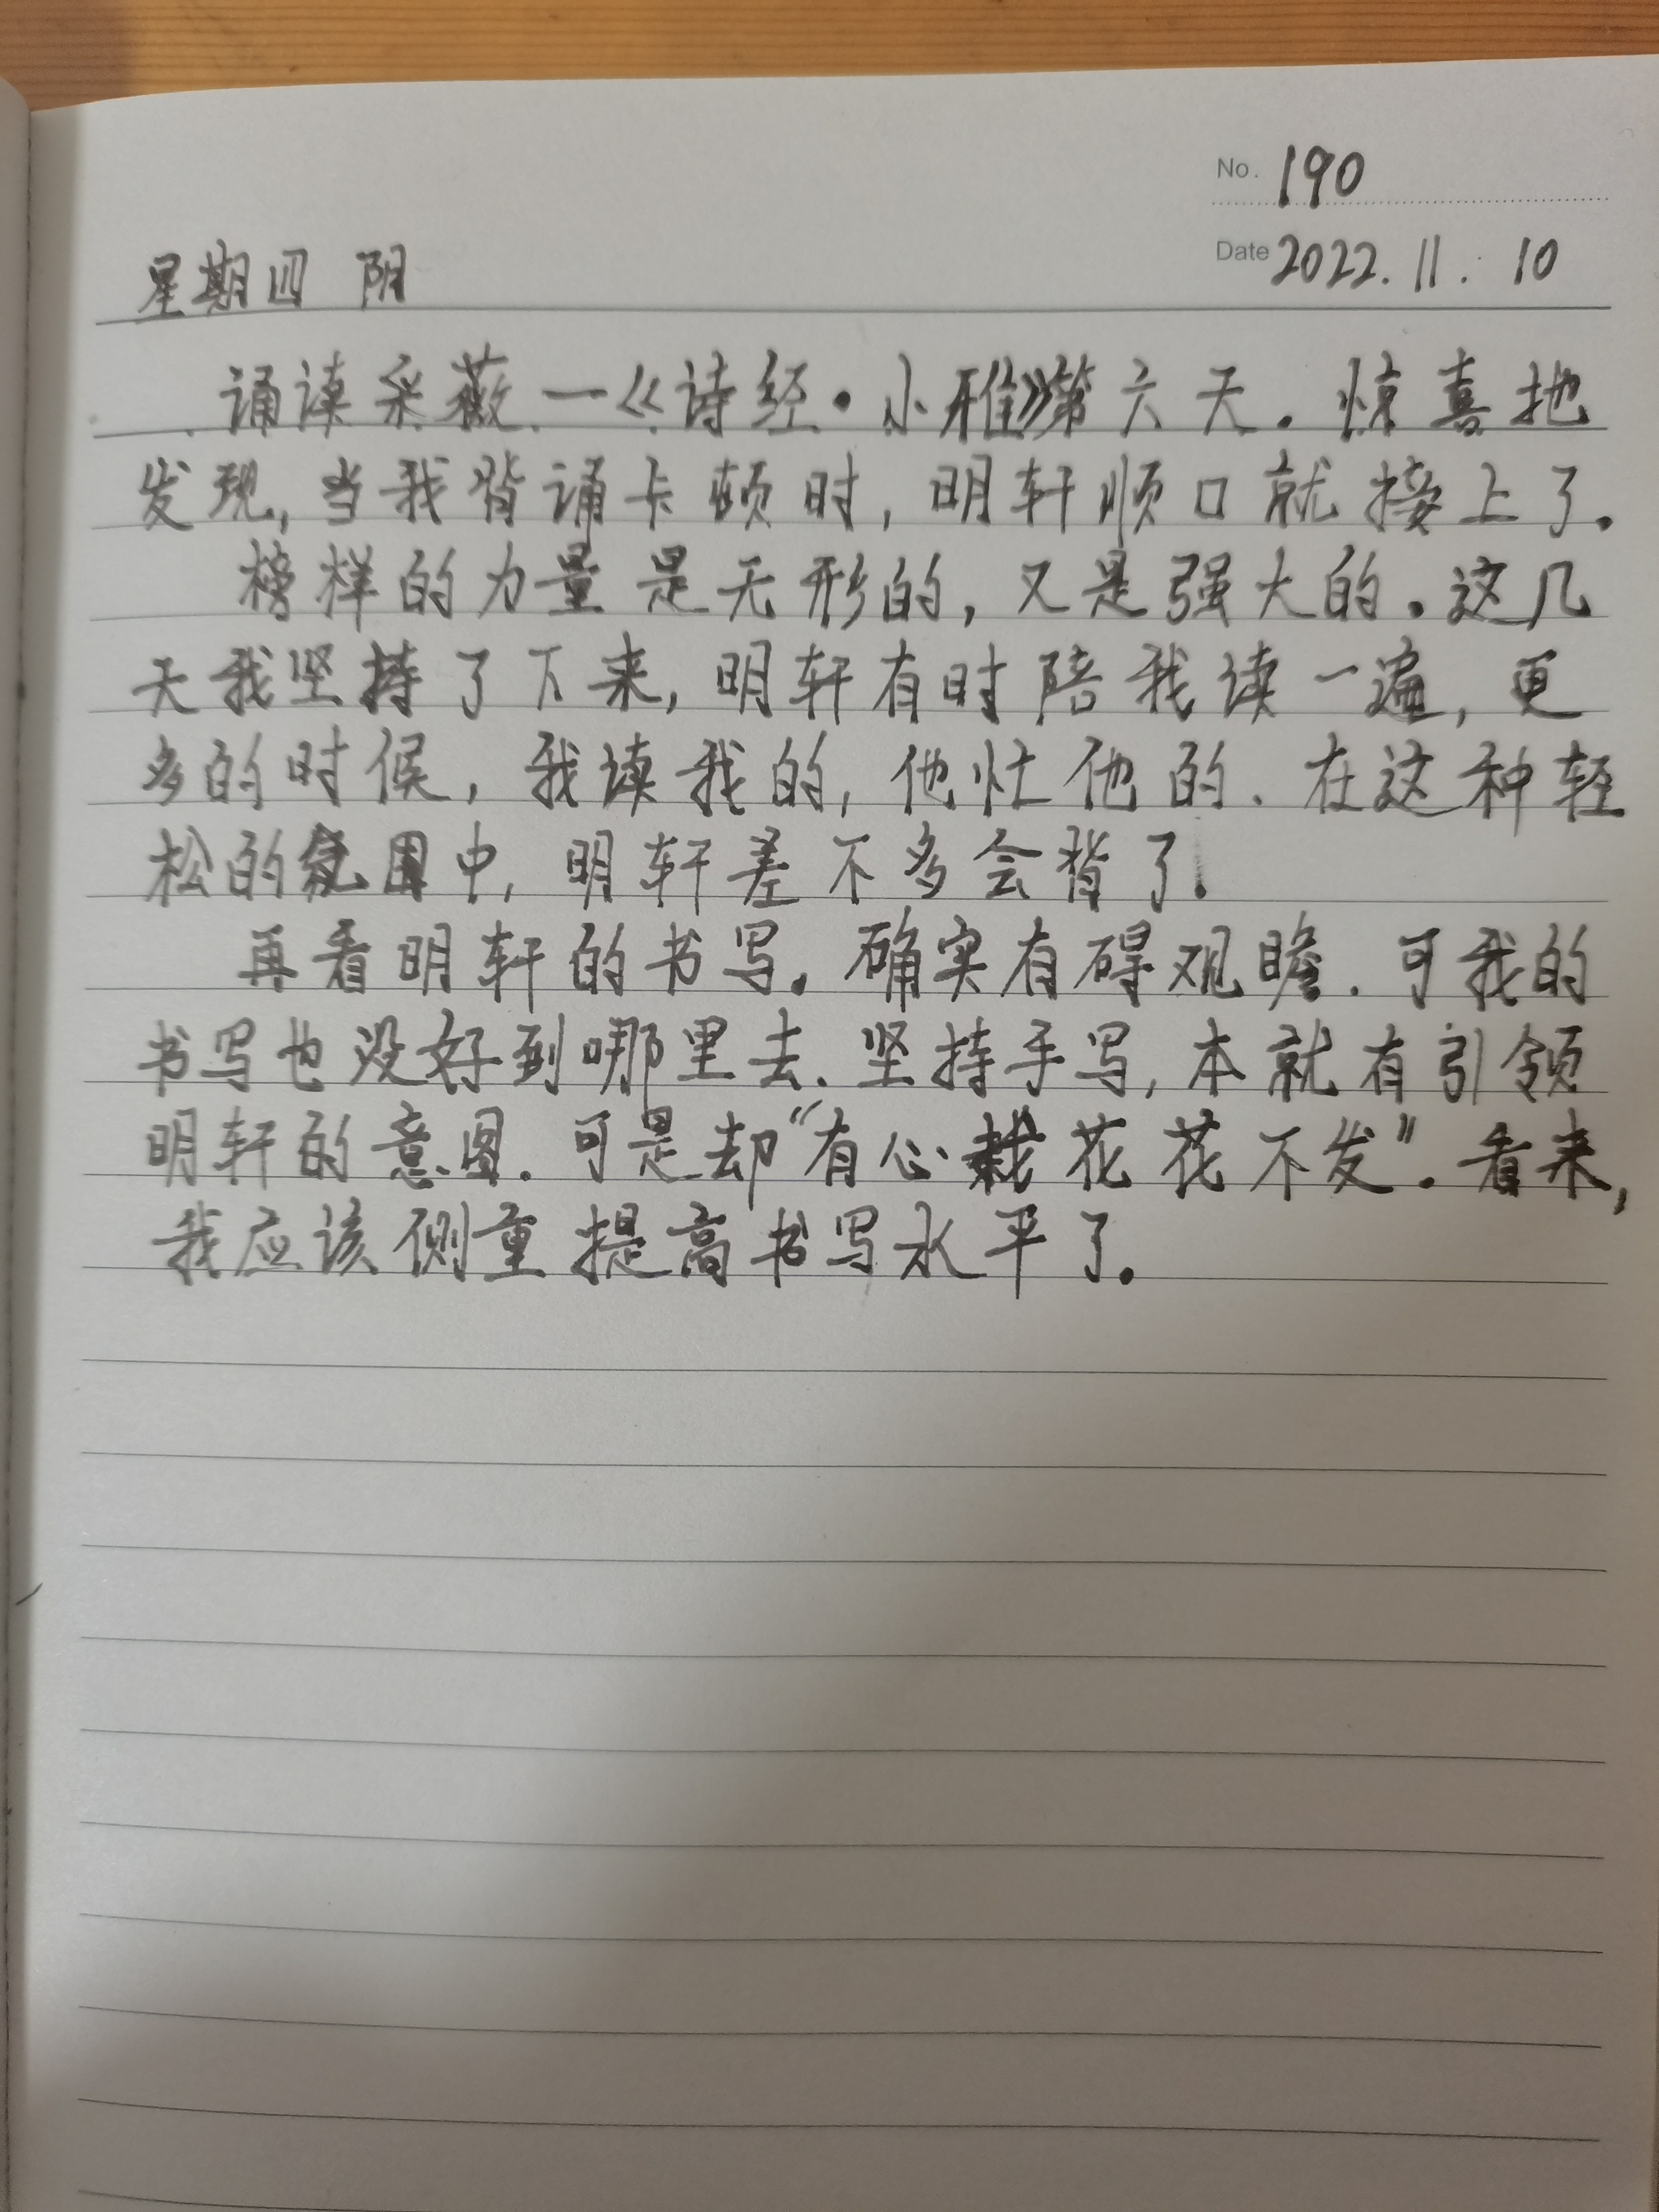 No. 190
Date 2022.11.10
星期四 阴
诵读采薇一《诗经·小雅》第六天.惊喜地
发现,当我背诵卡顿时,明轩顺口就接上了.
榜样的力量是无形的,又是强大的.这几
天我坚持了下来,明轩有时陪我读一遍,更
多的时候,我读我的,他忙他的.在这种轻
松的氛围中,明轩差不多会背了.
再看明轩的书写.确实有碍观瞻.可我的
书写也没好到哪里去.坚持手写,本就有引领
明轩的意图.可是却“有心栽花花不发”.看来,
我应该侧重提高书写水平了.